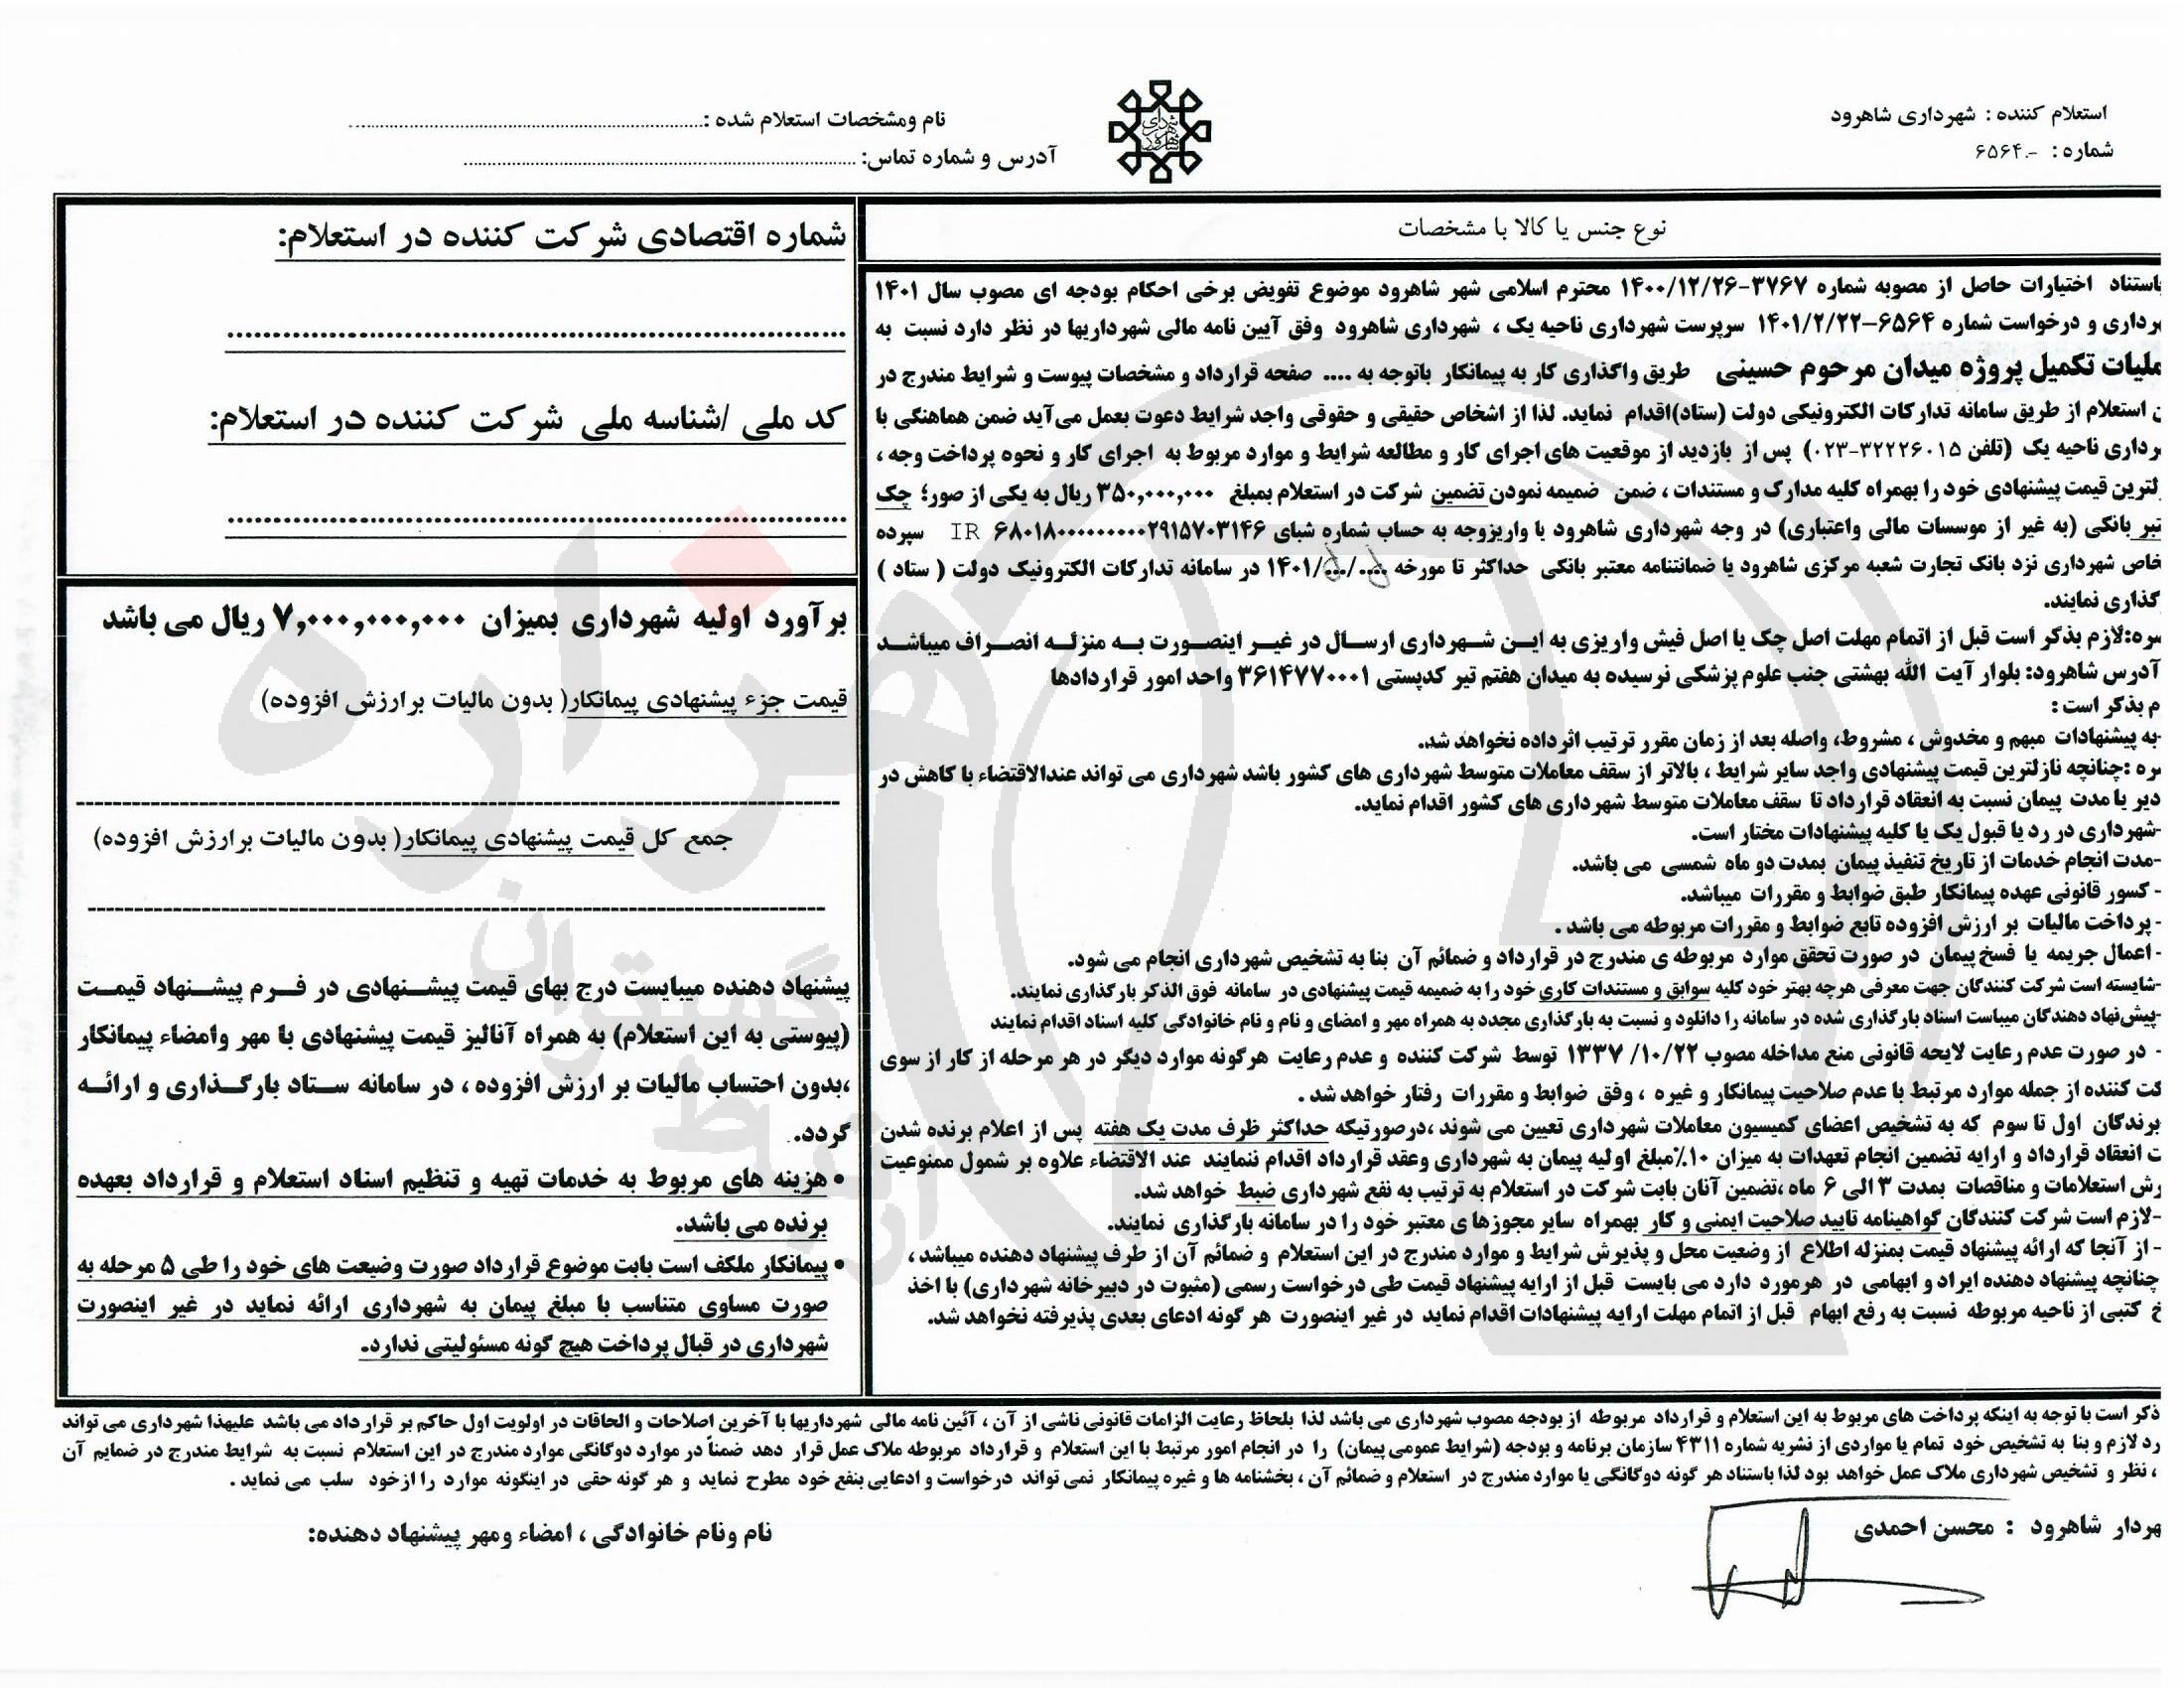 استعلام کننده : شهرداری شاهرود
شماره : -۶۵۶۴
نام ومشخصات استعلام شده :
آدرس و شماره تماس:
شهرداری شاهرود
نوع جنس یا کالا با مشخصات
باستناد اختیارات حاصل از مصوبه شماره ۳۷۶۷-۱۴۰۰/۱۲/۲۶ محترم اسلامی شهر شاهرود موضوع تفویض برخی احکام بودجه ای مصوب سال ۱۴۰۱
هرداری و درخواست شماره ۶۵۶۴-۱۴۰۱/۲/۲۲ سرپرست شهرداری ناحیه یک ، شهرداری شاهرود وفق آیین نامه مالی شهرداریها در نظر دارد نسبت به
ملیات تکمیل پروژه میدان مرحوم حسینی طریق واگذاری کار به پیمانکار باتوجه به .... صفحه قرارداد و مشخصات پیوست و شرایط مندرج در
ن استعلام از طریق سامانه تدارکات الکترونیکی دولت (ستاد)اقدام نماید. لذا از اشخاص حقیقی و حقوقی واجد شرایط دعوت بعمل می‌آید ضمن هماهنگی با
برداری ناحیه یک (تلفن ۳۲۲۲۶۰۱۵-۰۲۳) پس از بازدید از موقعیت های اجرای کار و مطالعه شرایط و موارد مربوط به اجرای کار و نحوه پرداخت وجه ،
زلترین قیمت پیشنهادی خود را بهمراه کلیه مدارک و مستندات ، ضمن ضمیمه نمودن تضمین شرکت در استعلام بمبلغ ۳۵۰,۰۰۰,۰۰۰ ریال به یکی از صور؛ چک
تبر بانکی (به غیر از موسسات مالی واعتباری) در وجه شهرداری شاهرود یا واریزوجه به حساب شماره شبای IR ۶۸۰۱۸۰۰۰۰۰۰۰۰۰۰۲۹۱۵۷۰۳۱۴۶ سپرده
خاص شهرداری نزد بانک تجارت شعبه مرکزی شاهرود یا ضمانتنامه معتبر بانکی حداکثر تا مورخه ..../.../۱۴۰۱ در سامانه تدارکات الکترونیک دولت ( ستاد )
گذاری نمایند.
سره:لازم بذکر است قبل از اتمام مهلت اصل چک یا اصل فیش واریزی به این شهرداری ارسال در غیر اینصورت به منزله انصراف میباشد
آدرس شاهرود: بلوار آیت الله بهشتی جنب علوم پزشکی نرسیده به میدان هفتم تیر کدپستی ۳۶۱۴۷۷۰۰۰۱ واحد امور قراردادها
م بذکر است :
-به پیشنهادات مبهم و مخدوش ، مشروط، واصله بعد از زمان مقرر ترتیب اثرداده نخواهد شد.
سره :چنانچه نازلترین قیمت پیشنهادی واجد سایر شرایط ، بالاتر از سقف معاملات متوسط شهرداری های کشور باشد شهرداری می تواند عندالاقتضاء با کاهش در
دیر یا مدت پیمان نسبت به انعقاد قرارداد تا سقف معاملات متوسط شهرداری های کشور اقدام نماید.
-شهرداری در رد یا قبول یک یا کلیه پیشنهادات مختار است.
-مدت انجام خدمات از تاریخ تنفیذ پیمان بمدت دو ماه شمسی می باشد.
- کسور قانونی عهده پیمانکار طبق ضوابط و مقررات میباشد.
- پرداخت مالیات بر ارزش افزوده تابع ضوابط و مقررات مربوطه می باشد .
- اعمال جریمه یا فسخ پیمان در صورت تحقق موارد مربوطه ی مندرج در قرارداد و ضمائم آن بنا به تشخیص شهرداری انجام می شود.
-شایسته است شرکت کنندگان جهت معرفی هرچه بهتر خود کلیه سوابق و مستندات کاری خود را به ضمیمه قیمت پیشنهادی در سامانه فوق الذکر بارگذاری نمایند.
-پیش‌نهاد دهندگان میباست اسناد بارگذاری شده در سامانه را دانلود و نسبت به بارگذاری مجدد به همراه مهر و امضای و نام و نام خانوادگی کلیه اسناد اقدام نمایند
- در صورت عدم رعایت لایحه قانونی منع مداخله مصوب ۱۰/۲۲/ ۱۳۳۷ توسط شرکت کننده و عدم رعایت هرگونه موارد دیگر در هر مرحله از کار از سوی
کت کننده از جمله موارد مرتبط با عدم صلاحیت پیمانکار و غیره ، وفق ضوابط و مقررات رفتار خواهد شد .
برندگان اول تا سوم که به تشخیص اعضای کمیسیون معاملات شهرداری تعیین می شوند ،درصورتیکه حداکثر ظرف مدت یک هفته پس از اعلام برنده شدن
ت انعقاد قرارداد و ارایه تضمین انجام تعهدات به میزان ۱۰٪مبلغ اولیه پیمان به شهرداری وعقد قرارداد اقدام ننمایند عند الاقتضاء علاوه بر شمول ممنوعیت
رش استعلامات و مناقصات بمدت ۳ الی ۶ ماه ،تضمین آنان بابت شرکت در استعلام به ترتیب به نفع شهرداری ضبط خواهد شد.
-لازم است شرکت کنندگان گواهینامه تایید صلاحیت ایمنی و کار بهمراه سایر مجوزها ی معتبر خود را در سامانه بارگذاری نمایند.
- از آنجا که ارائه پیشنهاد قیمت بمنزله اطلاع از وضعیت محل و پذیرش شرایط و موارد مندرج در این استعلام و ضمائم آن از طرف پیشنهاد دهنده میباشد ،
چنانچه پیشنهاد دهنده ایراد و ابهامی در هرمورد دارد می بایست قبل از ارایه پیشنهاد قیمت طی درخواست رسمی (مثبوت در دبیرخانه شهرداری) با اخذ
خ کتبی از ناحیه مربوطه نسبت به رفع ابهام قبل از اتمام مهلت ارایه پیشنهادات اقدام نماید در غیر اینصورت هر گونه ادعای بعدی پذیرفته نخواهد شد.
شماره اقتصادی شرکت کننده در استعلام:
کد ملی /شناسه ملی شرکت کننده در استعلام:
برآورد اولیه شهرداری بمیزان ۷,۰۰۰,۰۰۰,۰۰۰ ریال می باشد
قیمت جزء پیشنهادی پیمانکار( بدون مالیات برارزش افزوده)
جمع کل قیمت پیشنهادی پیمانکار( بدون مالیات برارزش افزوده)
پیشنهاد دهنده میبایست درج بهای قیمت پیشنهادی در فرم پیشنهاد قیمت
(پیوستی به این استعلام) به همراه آنالیز قیمت پیشنهادی با مهر وامضاء پیمانکار
،بدون احتساب مالیات بر ارزش افزوده ، در سامانه ستاد بارگذاری و ارائه
گردد.
• هزینه های مربوط به خدمات تهیه و تنظیم اسناد استعلام و قرارداد بعهده
برنده می باشد.
• پیمانکار ملکف است بابت موضوع قرارداد صورت وضیعت های خود را طی ۵ مرحله به
صورت مساوی متناسب با مبلغ پیمان به شهرداری ارائه نماید در غیر اینصورت
شهرداری در قبال پرداخت هیچ گونه مسئولیتی ندارد.
ذکر است با توجه به اینکه پرداخت های مربوط به این استعلام و قرارداد مربوطه از بودجه مصوب شهرداری می باشد لذا بلحاظ رعایت الزامات قانونی ناشی از آن ، آئین نامه مالی شهرداریها با آخرین اصلاحات و الحاقات در اولویت اول حاکم بر قرارداد می باشد علیهذا شهرداری می تواند
رد لازم و بنا به تشخیص خود تمام یا مواردی از نشریه شماره ۴۳۱۱ سازمان برنامه و بودجه (شرایط عمومی پیمان) را در انجام امور مرتبط با این استعلام و قرارداد مربوطه ملاک عمل قرار دهد ضمناً در موارد دوگانگی موارد مندرج در این استعلام نسبت به شرایط مندرج در ضمایم آن
، نظر و تشخیص شهرداری ملاک عمل خواهد بود لذا باستناد هر گونه دوگانگی یا موارد مندرج در استعلام و ضمائم آن ، بخشنامه ها و غیره پیمانکار نمی تواند درخواست و ادعایی بنفع خود مطرح نماید و هر گونه حقی در اینگونه موارد را ازخود سلب می نماید .
هردار شاهرود : محسن احمدی
نام ونام خانوادگی ، امضاء ومهر پیشنهاد دهنده:
هزاره
گستران